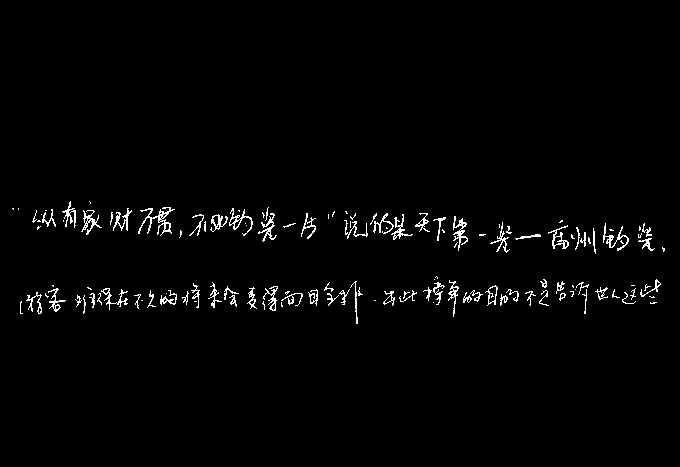 "纵有家财万贯,不如钧瓷一片"说的是天下第一瓷一禹州钧瓷,
游客 在不久的将来会变得面目全非.出此榜单的目的不是告诉世人这些